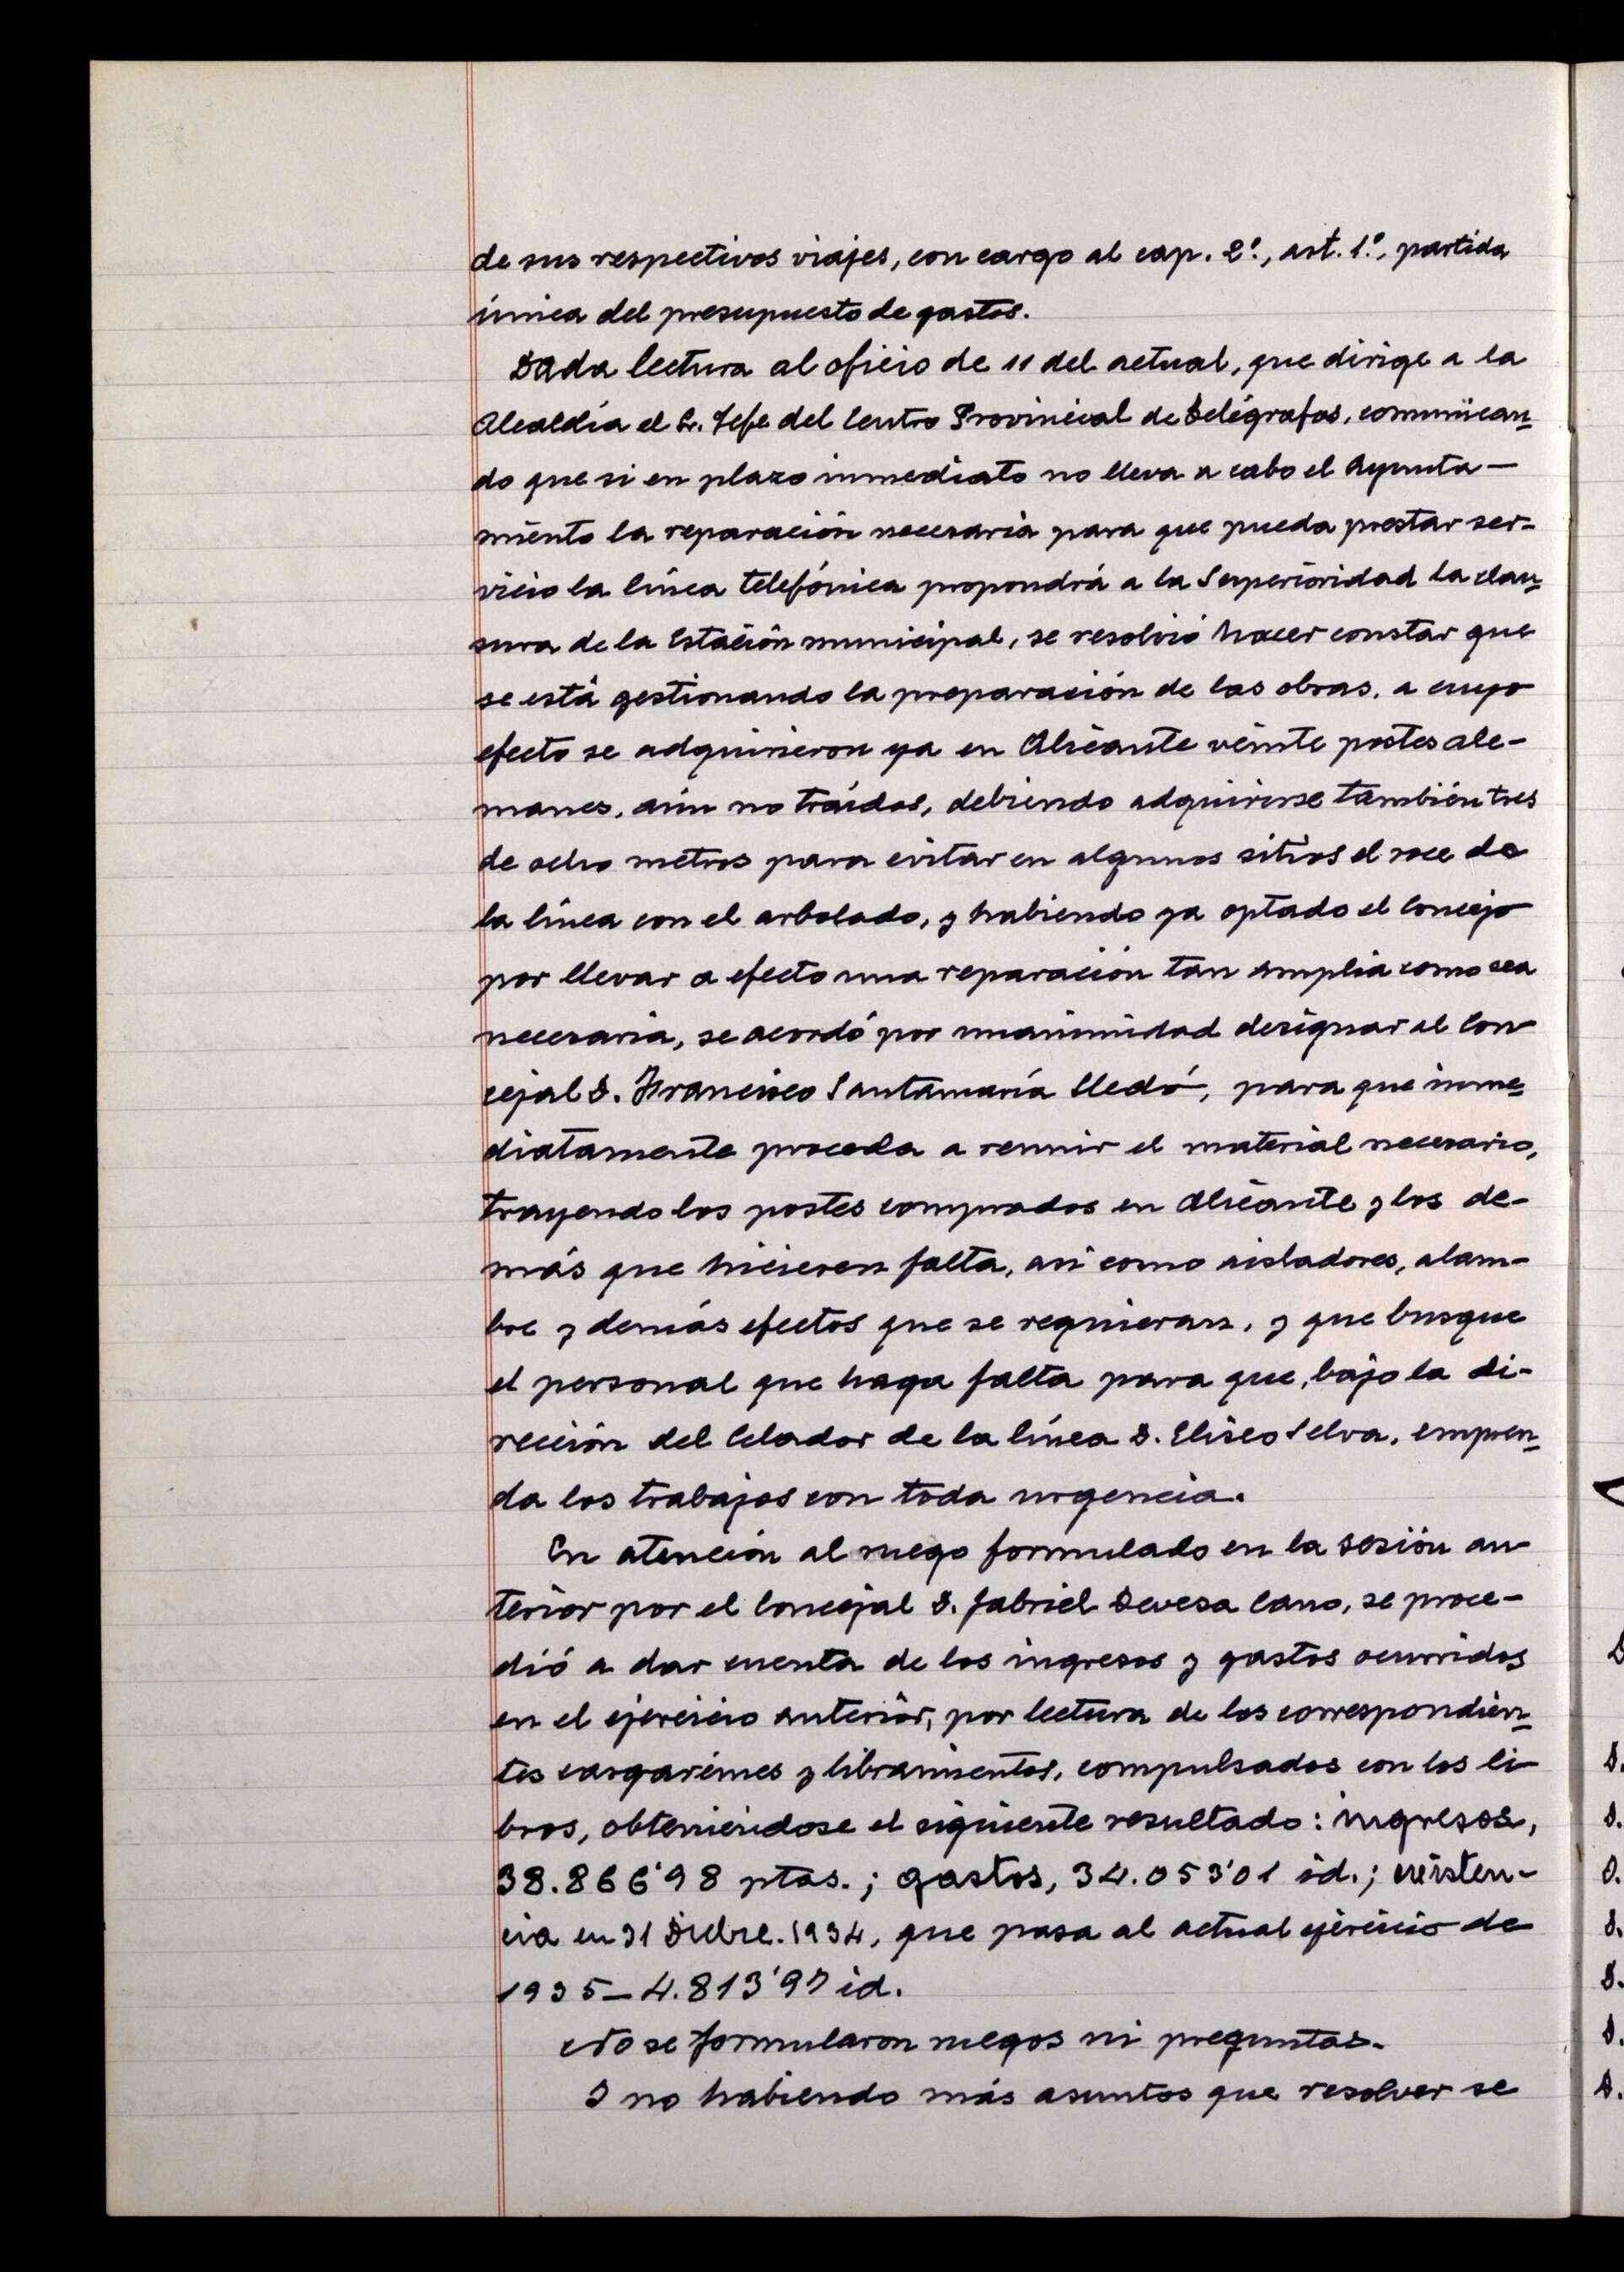 de sus respectivos viajes, con cargo al cap. 2º., art. 1º., partida
única del presupuesto de gastos.
Dada lectura al oficio de 11 del actual, que dirige a la
Alcaldía el Sr. Jefe del Centro Provincial de Telégrafos, comunican-
do que si en plazo inmediato no lleva a cabo el Ayunta-
miento la reparación necesaria para que pueda prestar ser-
vicio la línea telefónica propondrá a la Superioridad la clau-
sura de la Estación municipal, se resolvió hacer constar que
se está gestionando la preparación de las obras, a cuyo
efecto se adquirieron ya en Alicante veinte postes ale-
manes, aún no traídos, debiendo adquirirse también tres
de ocho metros para evitar en algunos sitios el roce de
la línea con el arbolado, y habiendo ya optado el Concejo
por llevar a efecto una reparación tan amplia como sea
necesaria, se acordó por unanimidad designar al Con-
cejal D. Francisco Santamaría Lledó, para que inme-
diatamente proceda a reunir el material necesario,
trayendo los postes comprados en Alicante y los de-
más que hicieren falta, así como aisladores, alam-
bre y demás efectos que se requieran, y que busque
el personal que haga falta para que, bajo la di-
rección del Celador de la línea D. Eliseo Selva, empren-
da los trabajos con toda urgencia.
En atención al ruego formulado en la sesión an-
terior por el Concejal D. Gabriel Devesa Cano, se proce-
dió a dar cuenta de los ingresos y gastos ocurridos
en el ejercicio anterior, por lectura de los correspondien-
tes cargarémes y libramientos, compulsados con los li-
bros, obteniéndose el siguiente resultado: ingresos,
38.866'98 ptas.; gastos, 34.053'01 id.; existen-
cia en 31 Dicbre. 1934, que pasa al actual ejercicio de
1935 - 4.813'97 id.
No se formularon ruegos ni preguntas.
Y no habiendo más asuntos que resolver se